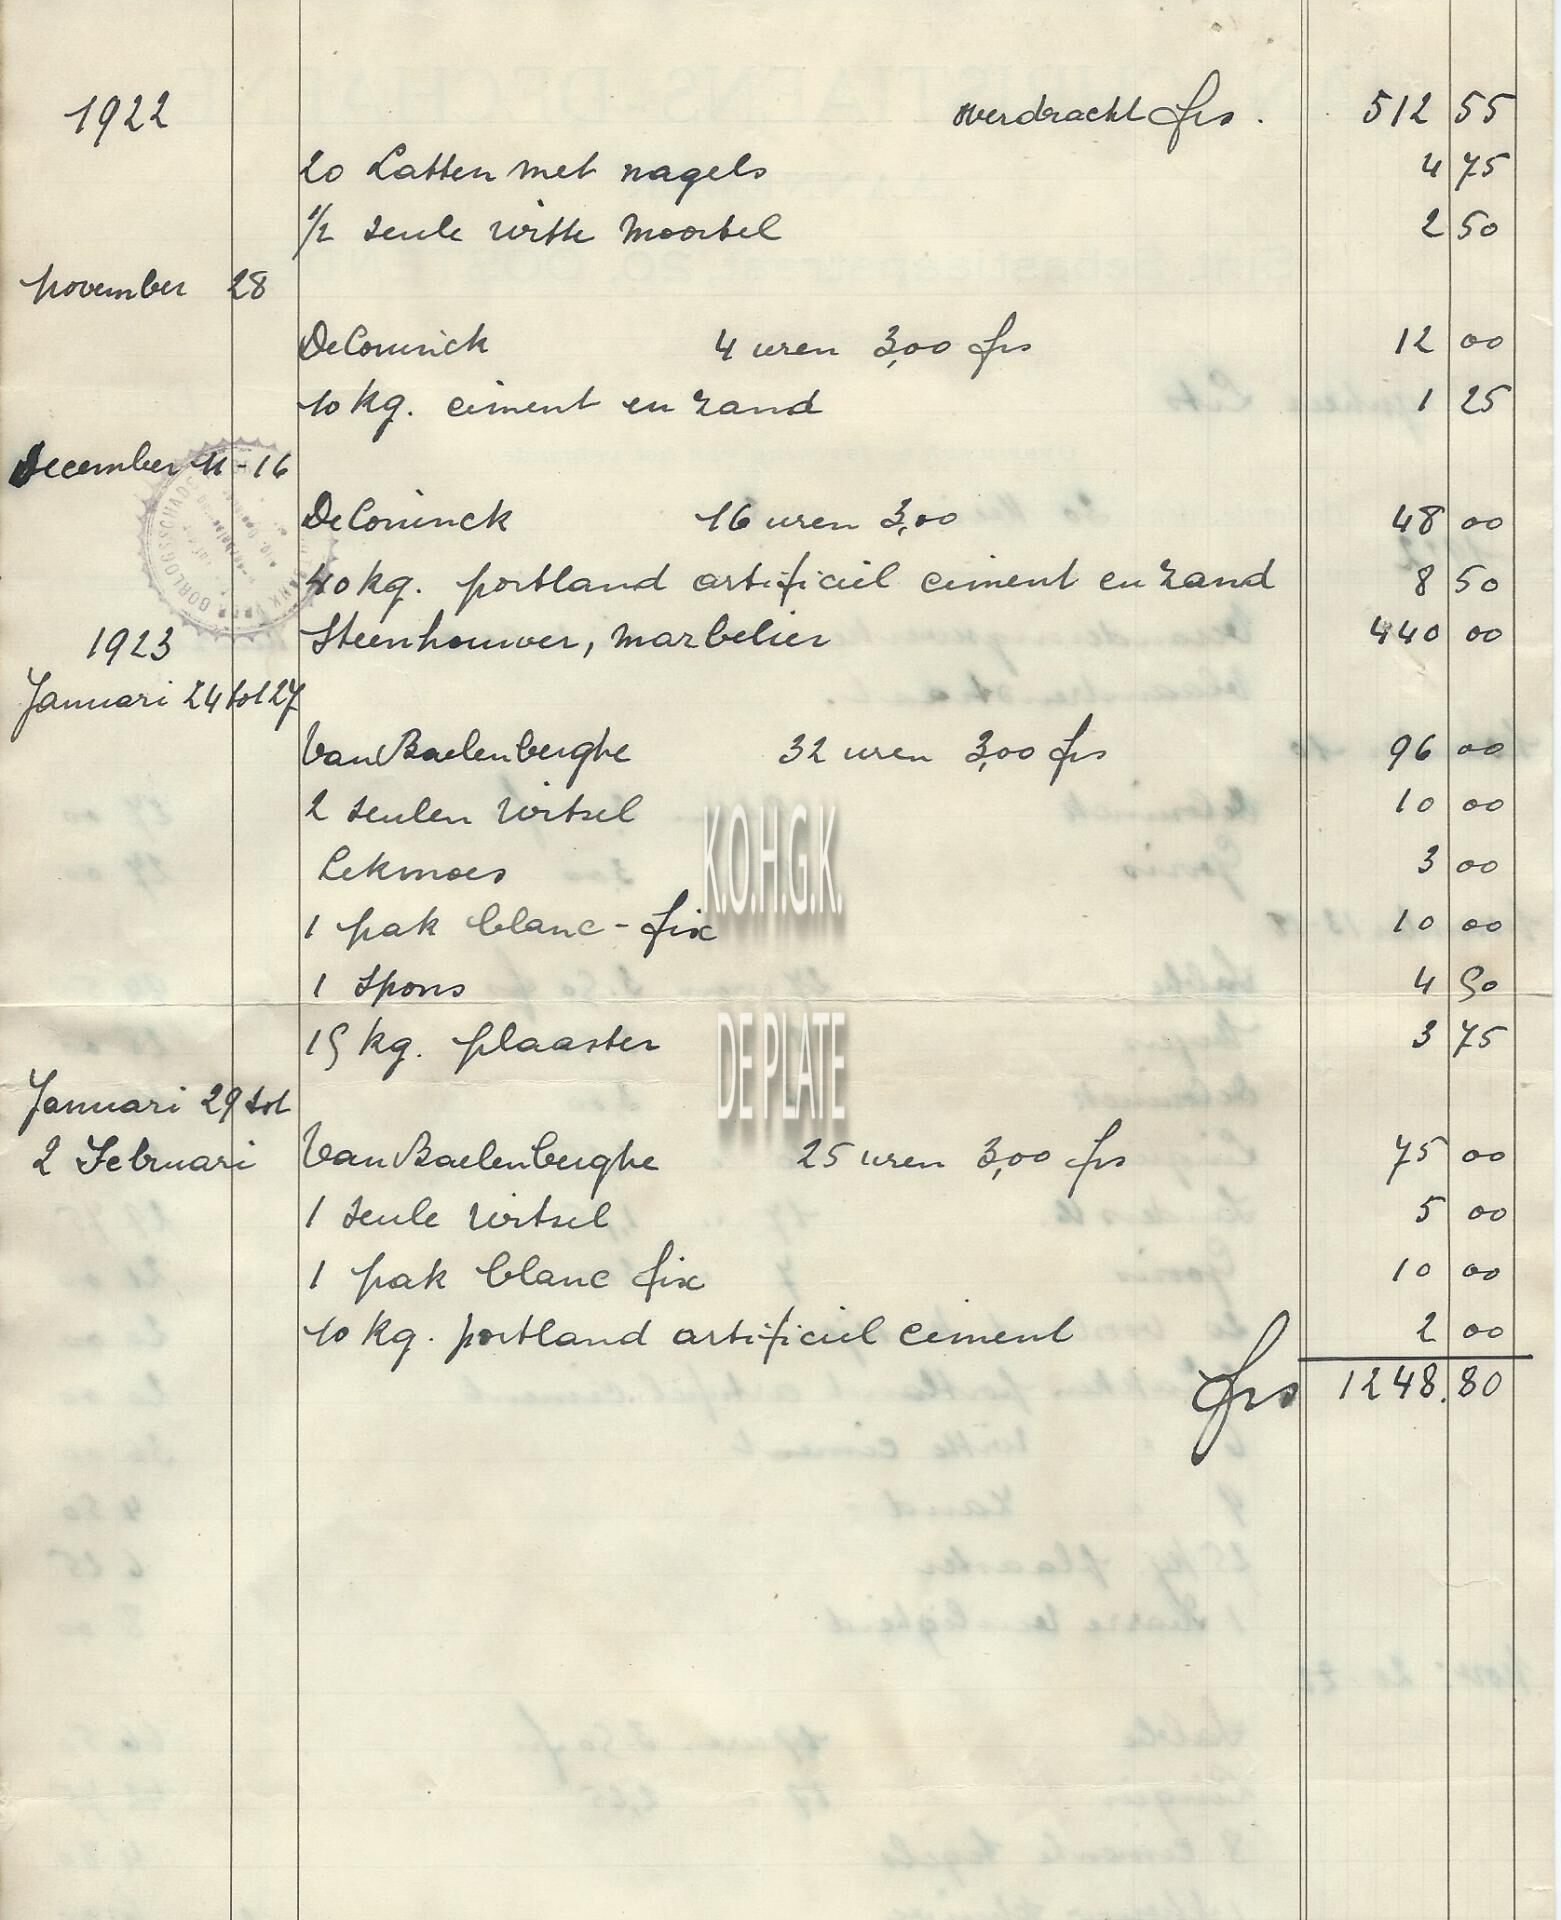 1922 overdracht frs. 512 55
20 Latten met nagels 4 75
1/2 seule witte moortel 2 50
november 28
DeConinck 4 uren 3,00 frs 12 00
10 kg. ciment en zand 1 25
December 11-16
DeConinck 16 uren 3,00 48 00
40 kg. portland artificiel ciment en zand 8 50
Steenhouwer, marbelier 440 00
1923
Januari 24 tot 27
VanBaelenberghe 32 uren 3,00 frs 96 00
2 seulen witsel 10 00
Lekmoes 3 00
1 pak blanc-fix 10 00
K.O.H.G.K.
1 spons 4 50
15 kg. plaaster 3 75
DE PLATE
Januari 29 tot
2 Februari VanBaelenberghe 25 uren 3,00 frs 75 00
1 seule witsel 5 00
1 pak blanc fix 10 00
10 kg. portland artificiel ciment 2 00
frs 1248.80